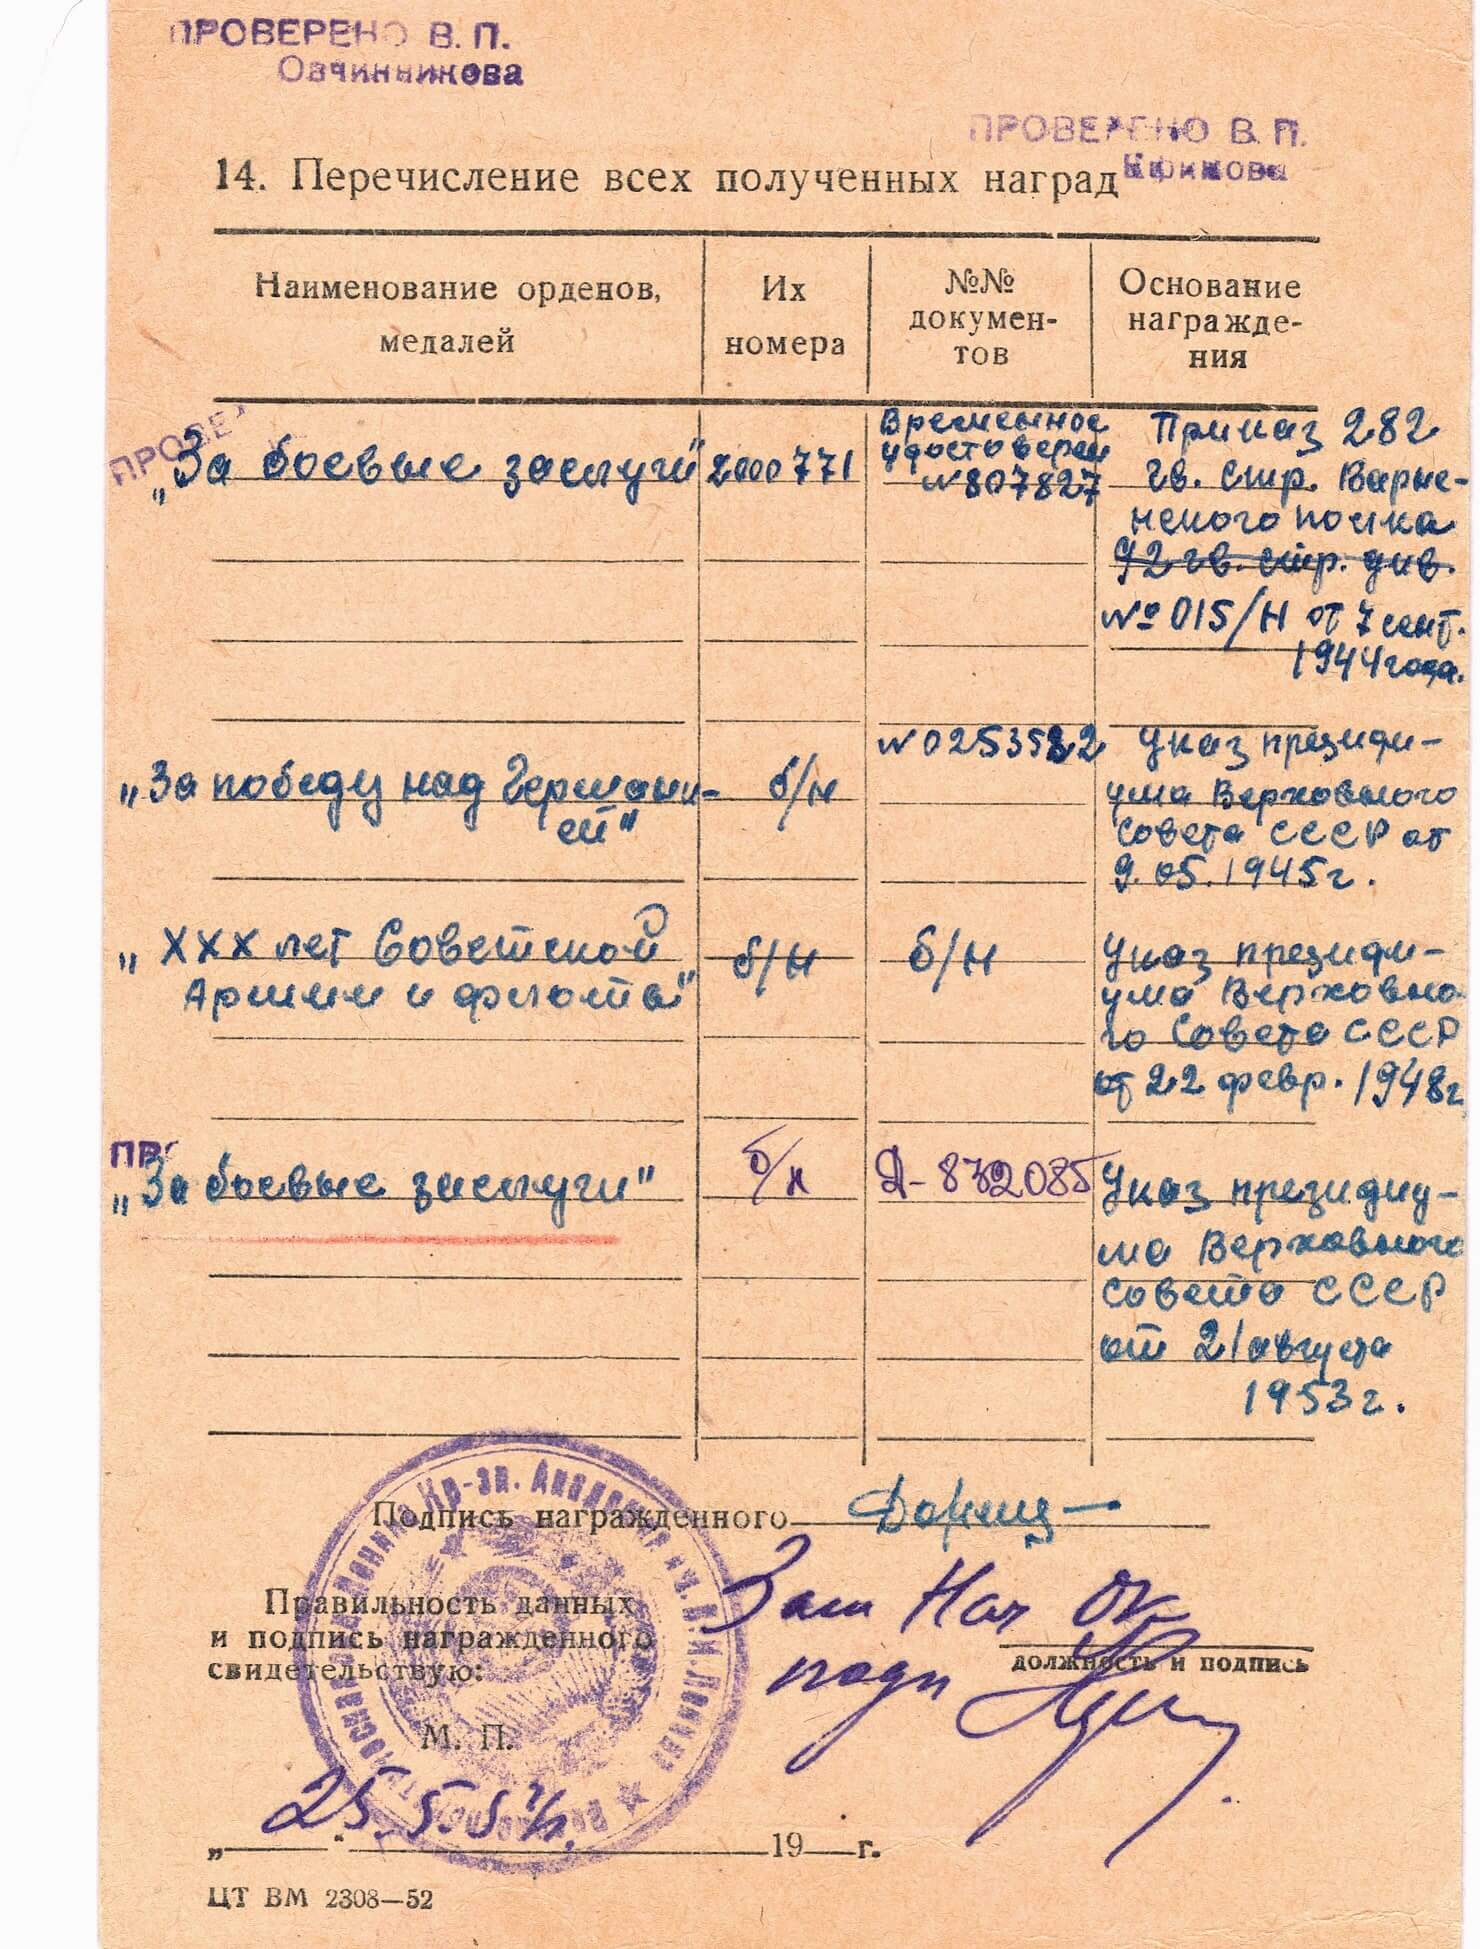 ПРОВЕРЕНО В. П.
Овчинникова
ПРОВЕРЕНО В. П.
14. Перечисление всех полученных наград
Наименование орденов, медалей
Их номера
№№ докумен-
тов
Основание
награжде-
ния
ПРОВЕ
„За боевые заслуги"
2000771
Временное
удостоверен
№807827
Приказ 282
гв. стр. Варне-
нского полка
92 гв. стр. див.
№ 015/Н от 7 сент.
1944 года.
„За победу над Германи-
ей"
б/н
№ 0253582
Указ президи-
ума Верховного
Совета СССР от
9.05.1945г.
„XXX лет Советской
Армии и флота"
б/н
б/н
Указ президи-
ума Верховно-
го Совета СССР
от 22 февр. 1948г
ПРО
„За боевые заслуги"
б/н
Д-832085
Указ президиу-
ма Верховного
Совета СССР
от 21 августа
1953г.
Подпись награжденного
Правильность данных
и подпись награжденного
свидетельствую:
Зам Нач
должность и подпись
М. П.
25.5.5
„ " 19 г.
ЦТ ВМ 2308—52